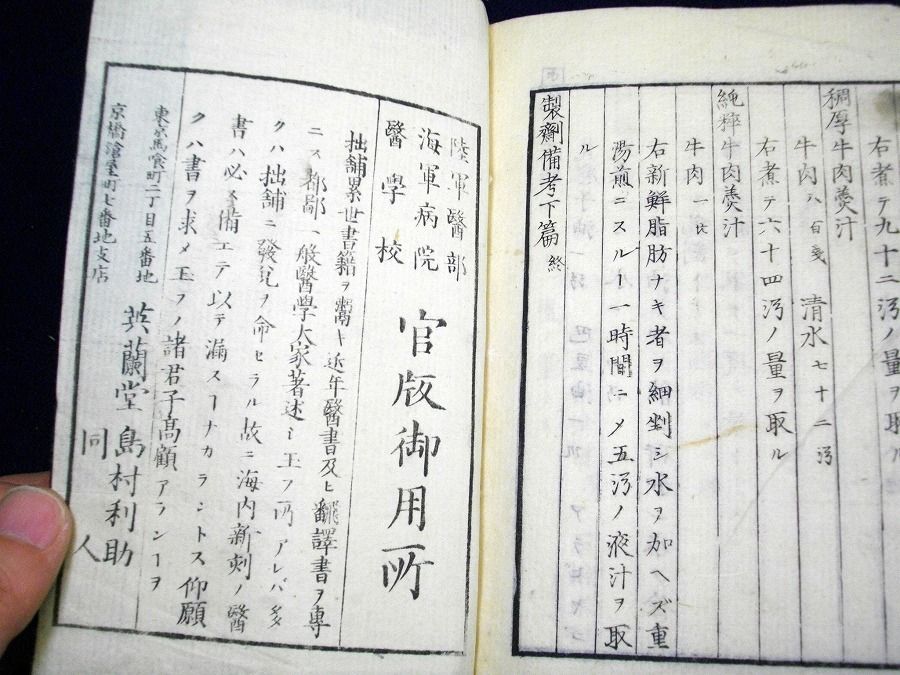 右煮テ九十二ノ量ヲ取ル
稠厚牛肉羹汁
牛肉 八百戔 清水 七十二
右煮テ六十四ノ量ヲ取ル
純粹牛肉羹汁
牛肉 一
右新鮮脂肪ナキ者ヲ細剉シ水ヲ加ヘズ重
湯煎ニスルヿ一時間ニメ五ノ液汁ヲ取
ル
製劑備考下篇 終
陸軍醫部
海軍病院
醫學校
官版御用所
拙舗累世書籍ヲ鬻キ近年醫書及ヒ飜譯書ヲ專
ニス都鄙一般醫學大家著述シ玉フ所アレバ多
クハ拙舗ニ發兌ヲ命セラル故ニ海内新刻ノ醫
書ハ必ス備エテ以テ漏スヿナカラントス仰願
クハ書ヲ求メ玉フノ諸君子高顧アランヿヲ
東京馬喰町二丁目五番地
英蘭堂 島村利助
京橋鎗屋町七番地支店
同人